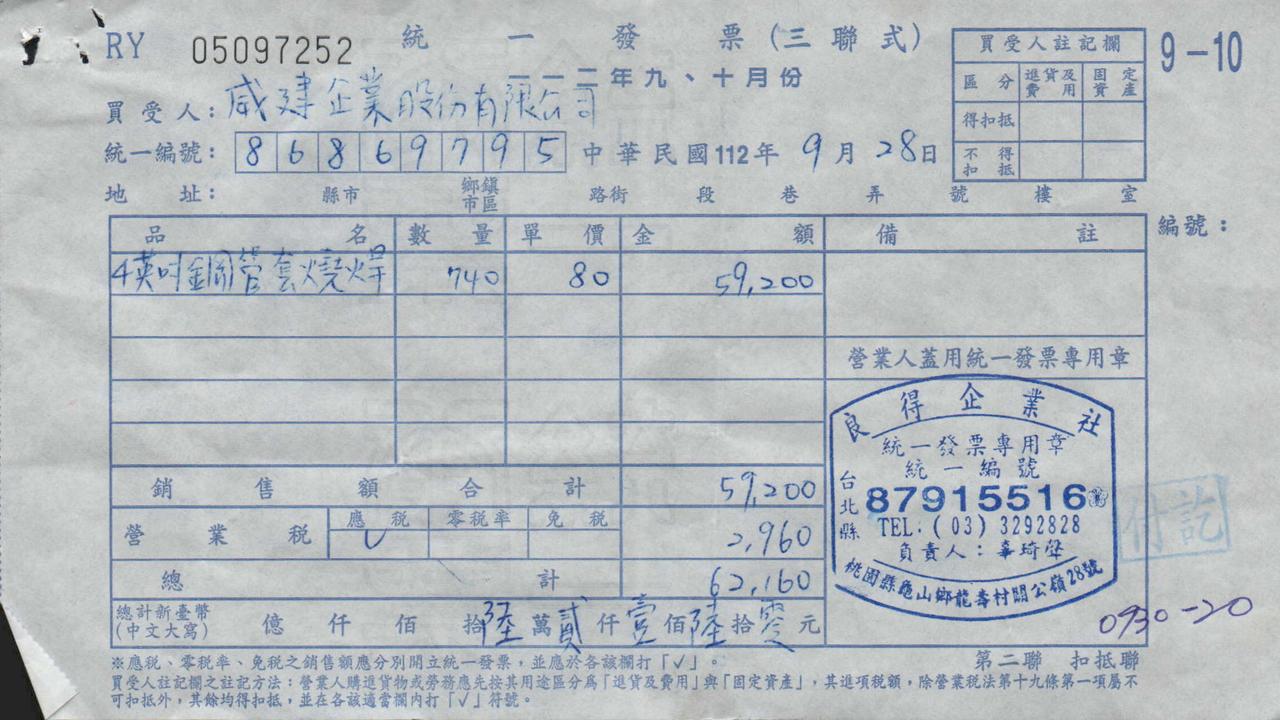 RY 05097252 統一發票(三聯式)
9-10
一一二年九、十月份
買受人註記欄
區分 進貨及費用 固定資產
得扣抵
不得扣抵
買受人: 威建企業股份有限公司
統一編號: 86869795 中華民國112年9月28日
地址: 縣市 鄉鎮市區 路街 段 巷 弄 號 樓 室
品名 數量 單價 金額 備註 編號:
4英吋鋼管套燒焊 740 80 59,200
營業人蓋用統一發票專用章
銷售額合計 59,200
營業稅 應稅 零稅率 免稅 2,960
總計 62,160
總計新臺幣(中文大寫) 億 仟 佰 拾陸萬貳仟壹佰陸拾零元
良得企業社
統一發票專用章
統一編號
台北縣
87915516
TEL.(03)3292828
負責人:
桃園縣龜山鄉龍壽村關公嶺28號
付訖
0930-20
※應稅、零稅率、免稅之銷售額應分別開立統一發票,並應於各該欄打「√」。
第二聯 扣抵聯
買受人註記欄之註記方法:營業人購進貨物或勞務應先按其用途區分為「進貨及費用」與「固定資產」,其進項稅額,除營業稅法第十九條第一項屬不
可扣抵外,其餘均得扣抵,並在各該適當欄內打「√」符號。